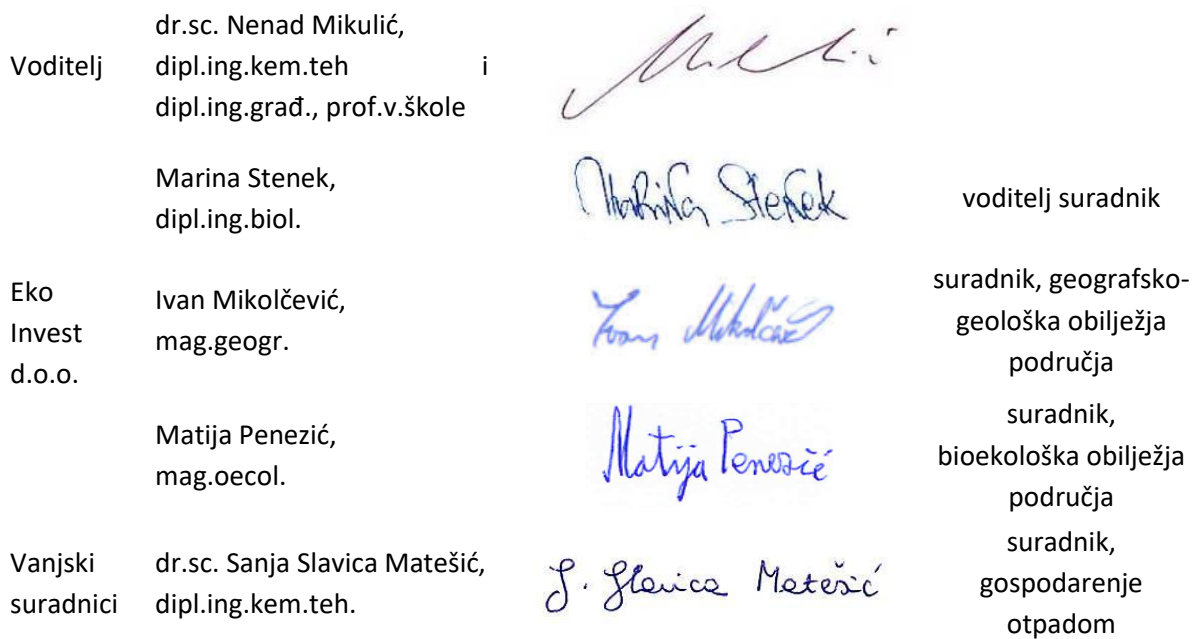 Voditelj
dr.sc. Nenad Mikulić,
dipl.ing.kem.teh i
dipl.ing.građ., prof.v.škole
Marina Stenek,
dipl.ing.biol.
Marina Stenek
voditelj suradnik
Eko
Invest
d.o.o.
Ivan Mikolčević,
mag.geogr.
Ivan Mikolčević
suradnik, geografsko-
geološka obilježja
područja
Matija Penezić,
mag.oecol.
Matija Penezić
suradnik,
bioekološka obilježja
područja
Vanjski
suradnici
dr.sc. Sanja Slavica Matešić,
dipl.ing.kem.teh.
S. Slavica Matešić
suradnik,
gospodarenje
otpadom